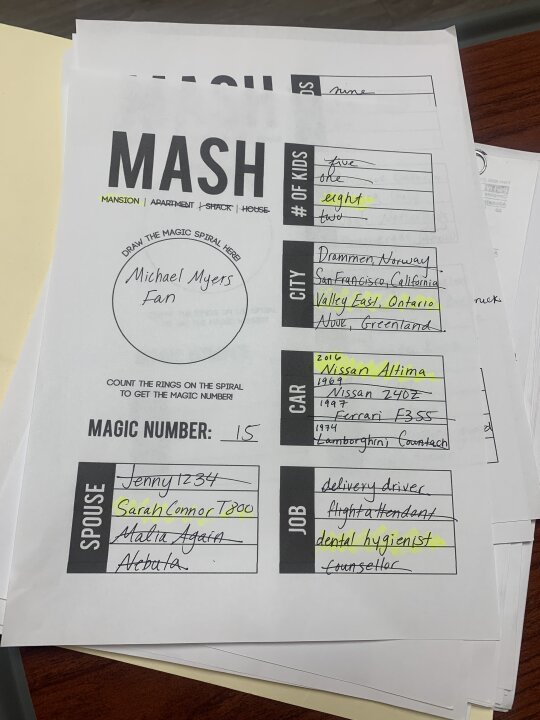 MASH
# OF KIDS
nine
MASH
MANSION | APARTMENT | SHACK | HOUSE
DRAW THE MAGIC SPIRAL HERE!
Michael Myers
Fan
COUNT THE RINGS ON THE SPIRAL
TO GET THE MAGIC NUMBER!
MAGIC NUMBER: 15
# OF KIDS
five
one
eight
two
CITY
Drammen, Norway
San Francisco, California
Valley East, Ontario
Nuuk, Greenland
CAR
2016
Nissan Altima
1969
Nissan 240Z
1997
Ferrari F355
1974
Lamborghini Countach
SPOUSE
Jenny1234
Sarah Connor T800
Malia Again
Nebula
JOB
delivery driver
flight attendant
dental hygienist
counsellor